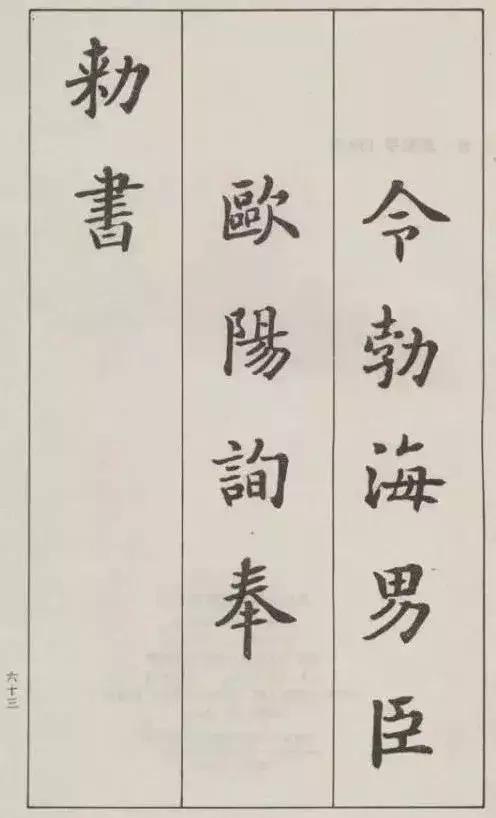 令勃海男臣
歐陽詢奉
勑書
六十三